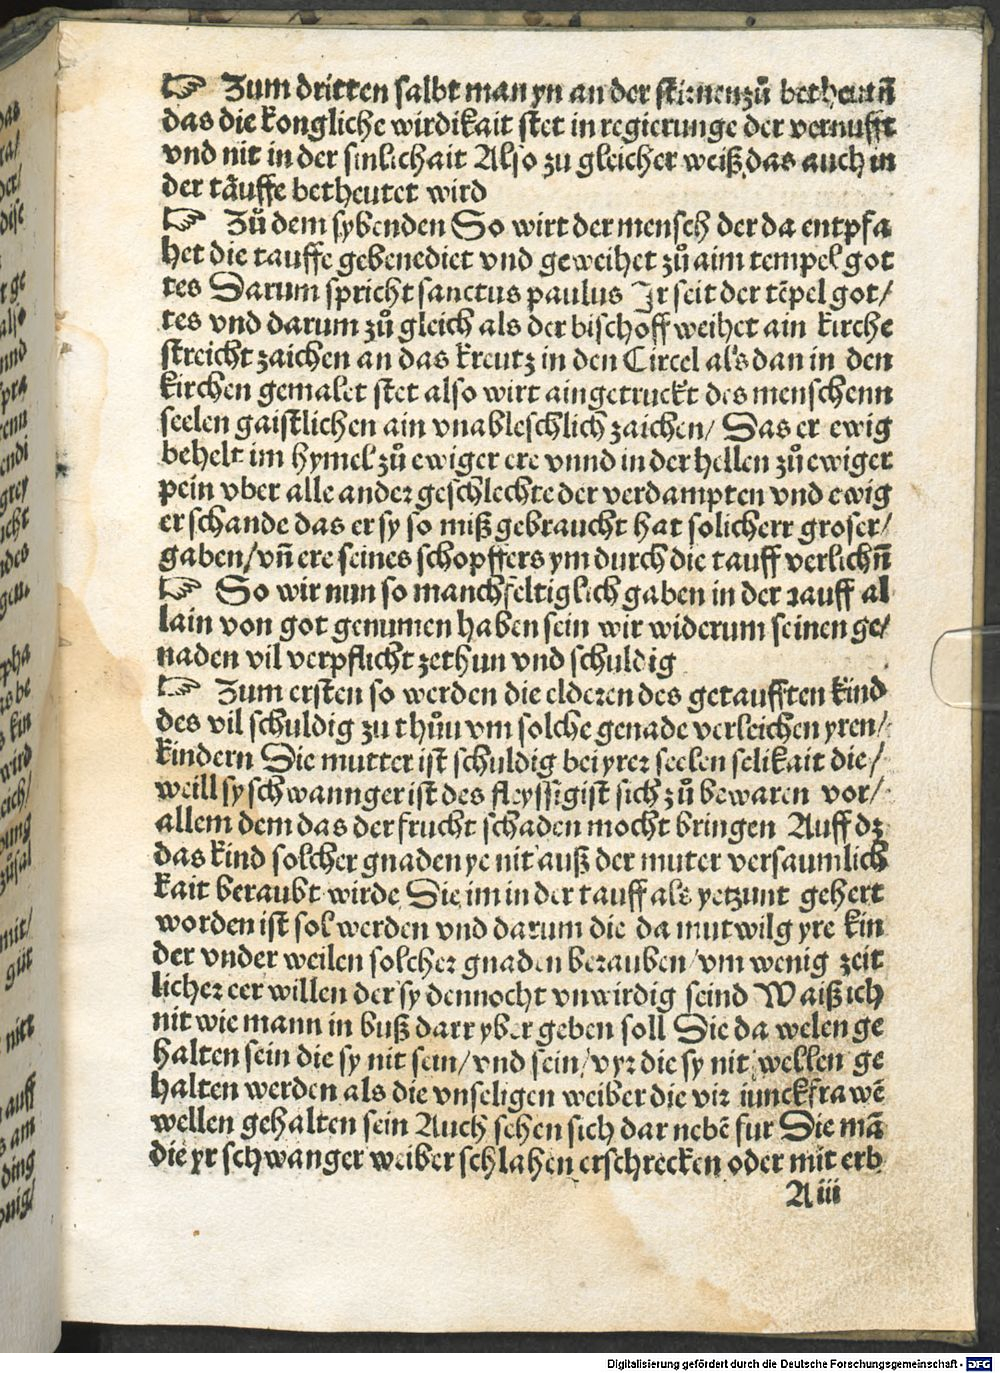 ☞ Zum dritten salbt man yn an der stirnen zů betheutñ
das die kongliche wirdikait stet in regierunge der vernufft
vnd nit in der sinlichait Also zu gleicher weiß das auch in
der tåuffe betheutet wird
☞ Zů dem sybenden So wirt der mensch der da entpfa
het die tauffe gebenediet vnd geweihet zů aim tempel got
tes Darum spricht sanctus paulus Ir seit der tēpel got/
tes vnd darum zů gleich als der bischoff weihet ain kirche
streicht zaichen an das kreutz in den Circel als dan in den
kirchen gemalet stet also wirt aingetruckt des menschenn
seelen gaistlichen ain vnableschlich zaichen/ Das er ewig
behelt im hymel zů ewiger ere vnnd in der hellen zů ewiger
pein vber alle ander geschlechte der verdampten vnd ewig
er schande das er sy so miß gebraucht hat solicherr groser/
gaben/ vñ ere seines schopffers ym durch die tauff verlichñ
☞ So wir nun so manchfeltiglich gaben in der tauff al
lain von got genumen haben sein wir widerum seinen ge/
naden vil verpflicht zethun vnd schuldig
☞ Zum ersten so werden die elderen des getaufften kind
des vil schuldig zu thůu vm solche genade verleichen yren/
kindern Die mutter ist schuldig bei yrer seelen selikait die/
weill sy schwannger ist des fleyssigist sich zů bewaren vor/
allem dem das der frucht schaden mocht bringen Auff dz
das kind solcher gnaden ye nit auß der muter versaumlich
kait beraubt wirde Die im in der tauff als yetzunt gehert
worden ist sol werden vnd darum die da mutwilg yre kin
der vnder weilen solcher gnaden berauben/ vm wenig zeit
licher eer willen der sy dennocht vnwirdig seind Waiß ich
nit wie mann in buß darr yber geben soll Die da welen ge
halten sein die sy nit sein/ vnd sein/ vyr die sy nit wellen ge
halten werden als die vnseligen weiber die vir iunckfrawē
wellen gehalten sein Auch sehen sich dar nebē fur Die mā
die yr schwanger weiber schlahen erschrecken oder mit erb
A iii
Digitalisierung gefördert durch die Deutsche Forschungsgemeinschaft - DFG